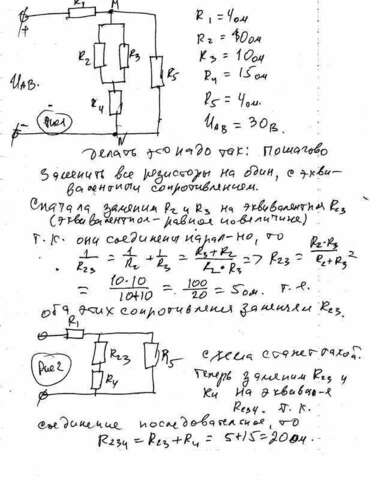 R1 M
+
R2 R3 R5
UAB.
R4
Рис1
N
R1 = 4ом
R2 = 10ом
R3 = 10ом
R4 = 15ом
R5 = 4ом.
UAB = 30В.
Делать это надо так: Пошагово
заменить все резисторы на один, с экви-
валентным сопротивлением.
Сначала заменим R2 и R3 на эквивалентном R23
(эквивалентное - равное по величине)
Т.К. они соединены парал-но, то
1/R23 = 1/R2 + 1/R3 = (R3+R2)/(R2·R3) => R23 = (R2·R3)/(R2+R3) =
= (10·10)/(10+10) = 100/20 = 5ом. Т.е.
оба этих сопротивления заменяем R23.
R1
R23 R5
R4
Рис2
схема станет такой.
Теперь заменим R23 и
R4 на эквивал-е
R234. Т.К.
соединение последовательное, то
R234 = R23 + R4 = 5+15=20ом.